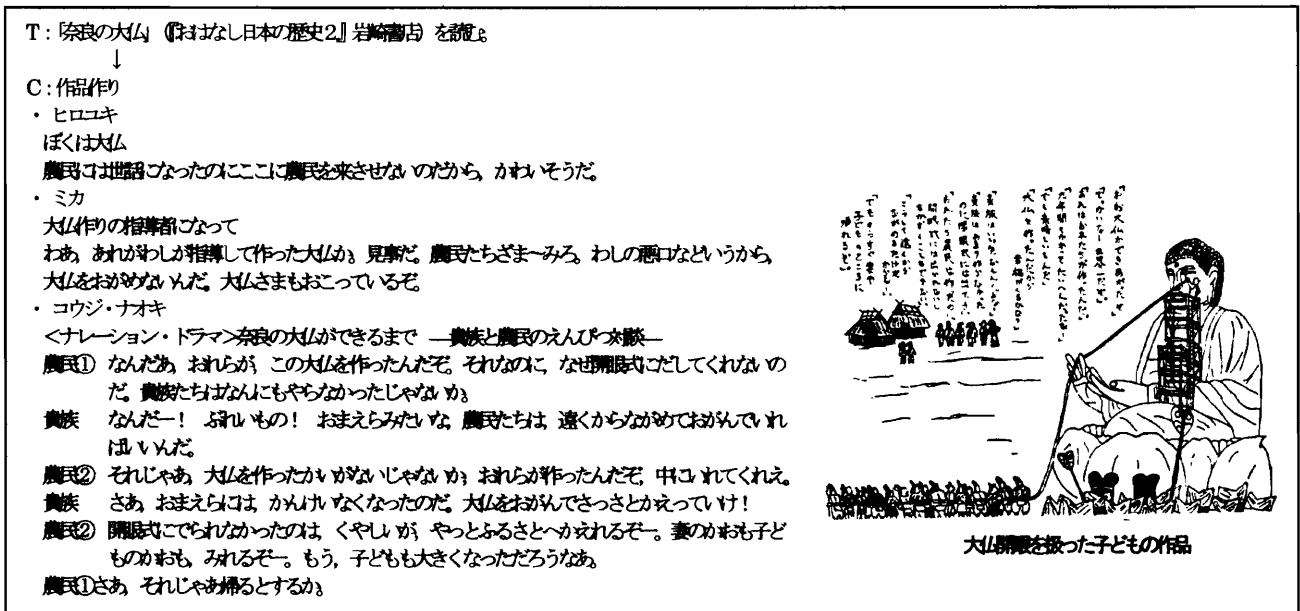 T:「奈良の大仏」(『おはなし日本の歴史2』岩崎書店)を読む。
↓
C:作品作り
・ ヒロユキ
ぼくは大仏
農民には世話になったのにここに農民を来させないのだから,かわいそうだ。
・ ミカ
大仏作りの指導者になって
わあ,あれがわしが指導して作った大仏か。見事だ。農民たちざま~みろ。わしの悪口などいうから,
大仏をおがめないんだ。大仏さまもおこっているぞ。
・ コウジ・ナオキ
<ナレーション・ドラマ>奈良の大仏ができるまで ―貴族と農民のえんぴつ対談―
農民① なんだあ,おれらが,この大仏を作ったんだぞ。それなのに,なぜ開眼式にだしてくれないの
だ。貴族たちはなんにもやらなかったじゃないか。
貴族 なんだー! ぶれいもの! おまえらみたいな,農民たちは,遠くからながめておがんでいれ
ばいいんだ。
農民② それじゃあ,大仏を作ったかいがないじゃないか。おれらが作ったんだぞ,中にいれてくれえ。
貴族 さあ,おまえらには,かんけいなくなったのだ。大仏をおがんでさっさとかえっていけ!
農民② 開眼式にでられなかったのは,くやしいが,やっとふるさとへかえれるぞー。妻のかおも子ど
ものかおも,みれるぞー。もう,子どもも大きくなっただろうなあ。
農民①さあ,それじゃあ帰るとするか。
「おお大仏ができあがったぞ。
でっかいなー世界一だぞ。」
大仏を作ったんだから
こうして遠くから
帰れるぞ。」
大仏開眼を扱った子どもの作品